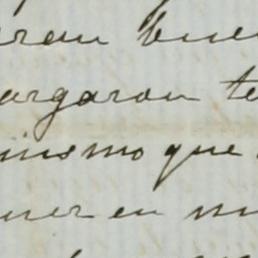 eran bue
argaron te
mismo que
ner en mi